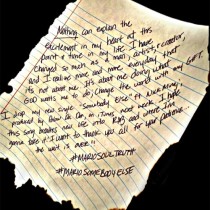 Nothing can explain the
excitement in my heart at this
point & time in my life. I have
changed so much as a man, artist, & creator,
and I realize more and more everyday that
it's not about me. It's about me doing what my GIFT
God wants me to do; change the world with my
I drop my new single "Somebody Else" ft. Nicki Minaj,
produced by Polow da Don, in Jan, next week. I hope
this song breathes new life into R&B and where I'm
gonna take it! I want to thank you all for your patience...
the wait is over!!
#MARIOSOULTRUTH
#MARIOSOMEBODYELSE